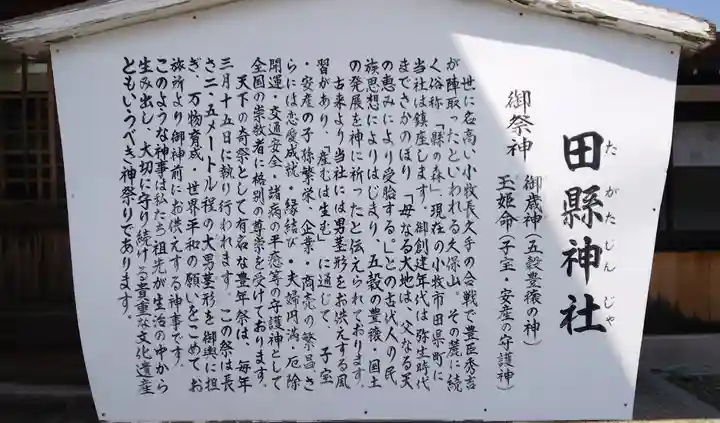 田縣神社
たがたじんじゃ
御祭神 御歳神(五穀豊穣の神)
玉姫命(子宝・安産の守護神)
世に名高い小牧長久手の合戦で豊臣秀吉
が陣取ったといわれる久保山。その麓に続
く俗称「縣の森」現在の小牧市田県町に
当社は鎮座します。御創建年代は弥生時代
までさかのぼり、「母なる大地は、父なる天
の恵みにより受胎する」との古代人の民
族思想によりはじまり、五穀の豊穣・国土
の発展を神に祈ったと伝えられております。
古来より当社には男茎形をお供えする風
習があり、「産むは生む」に通じて、子宝
・安産の子孫繁栄、企業・商売の繁昌、さ
らには恋愛成就・縁結び・夫婦円満・厄除
開運・交通安全・諸病の平癒等の守護神として
全国の崇敬者に格別の尊崇を受けております。
天下の奇祭として有名な豊年祭は、毎年
三月十五日に執り行われます。この祭は長
さ二・五メートル程の大男茎形を御輿に担
ぎ、万物育成・世界平和の願いをこめてお
旅所より御神前にお供えする神事です。
このような神事は私たち祖先が生活の中から
生み出し、大切に守り続ける貴重な文化遺産
ともいうべき神祭りであります。